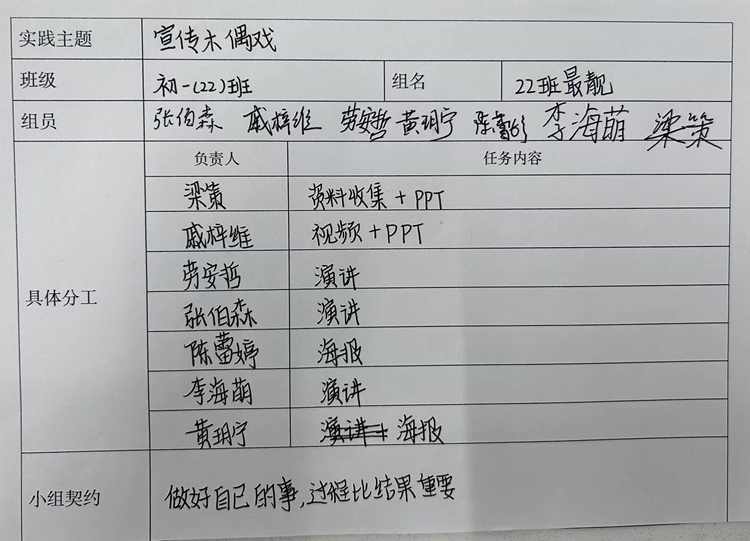 实践主题 宣传木偶戏
班级 初一(22)班 组名 22班最靓
组员 张伯森 戚梓维 劳安哲 黄玥宁 陈蕾婷 李海萌 梁策
负责人 任务内容
梁策 资料收集+PPT
戚梓维 视频+PPT
劳安哲 演讲
具体分工
张伯森 演讲
陈蕾婷 海报
李海萌 演讲
黄玥宁 演讲+海报
小组契约 做好自己的事,过程比结果重要